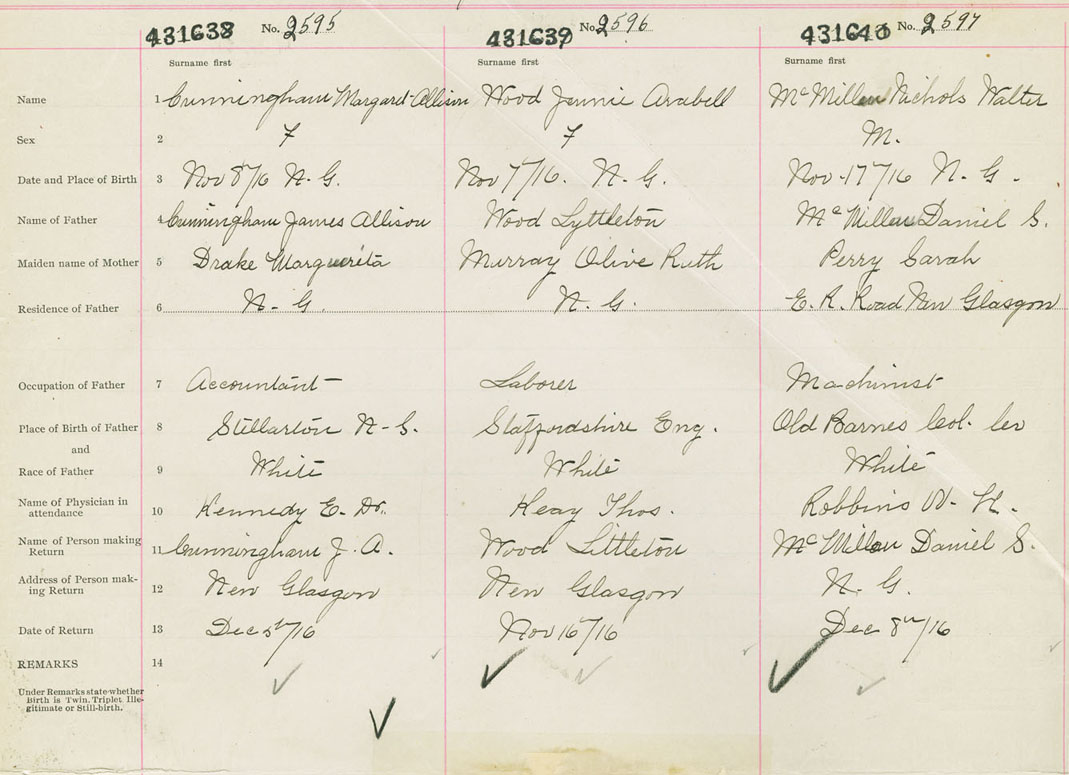 431638 No. 2595 431639 No. 2596 431640 No. 2597
Surname first Surname first Surname first
Name 1 Cunningham Margaret Allison Wood Jennie Arabell McMillan Nichols Walter
Sex 2 F F M.
Date and Place of Birth 3 Nov 8/16 N. G. Nov 7/16. N. G. Nov. 17/16 N. G.
Name of Father 4 Cunningham James Allison Wood Lyttleton McMillan Daniel S.
Maiden name of Mother 5 Drake Marguerita Murray Olive Ruth Perry Sarah
Residence of Father 6 N. G. N. G. E. R. Road New Glasgow
Occupation of Father 7 Accountant Laborer Machinist
Place of Birth of Father 8 Stellarton N. S. Staffordshire Eng. Old Barnes Col. Co
and
Race of Father 9 White White White
Name of Physician in
attendance 10 Kennedy E. Dr. Keay Thos. Robbins W. H.
Name of Person making
Return 11 Cunningham J. A. Wood Littleton McMillan Daniel S.
Address of Person mak-
ing Return 12 New Glasgow New Glasgow N. G.
Date of Return 13 Dec 5th/16 Nov 16/16 Dec 8th/16
REMARKS 14
Under Remarks state whether
Birth is Twin, Triplet Ille-
gitimate or Still-birth.